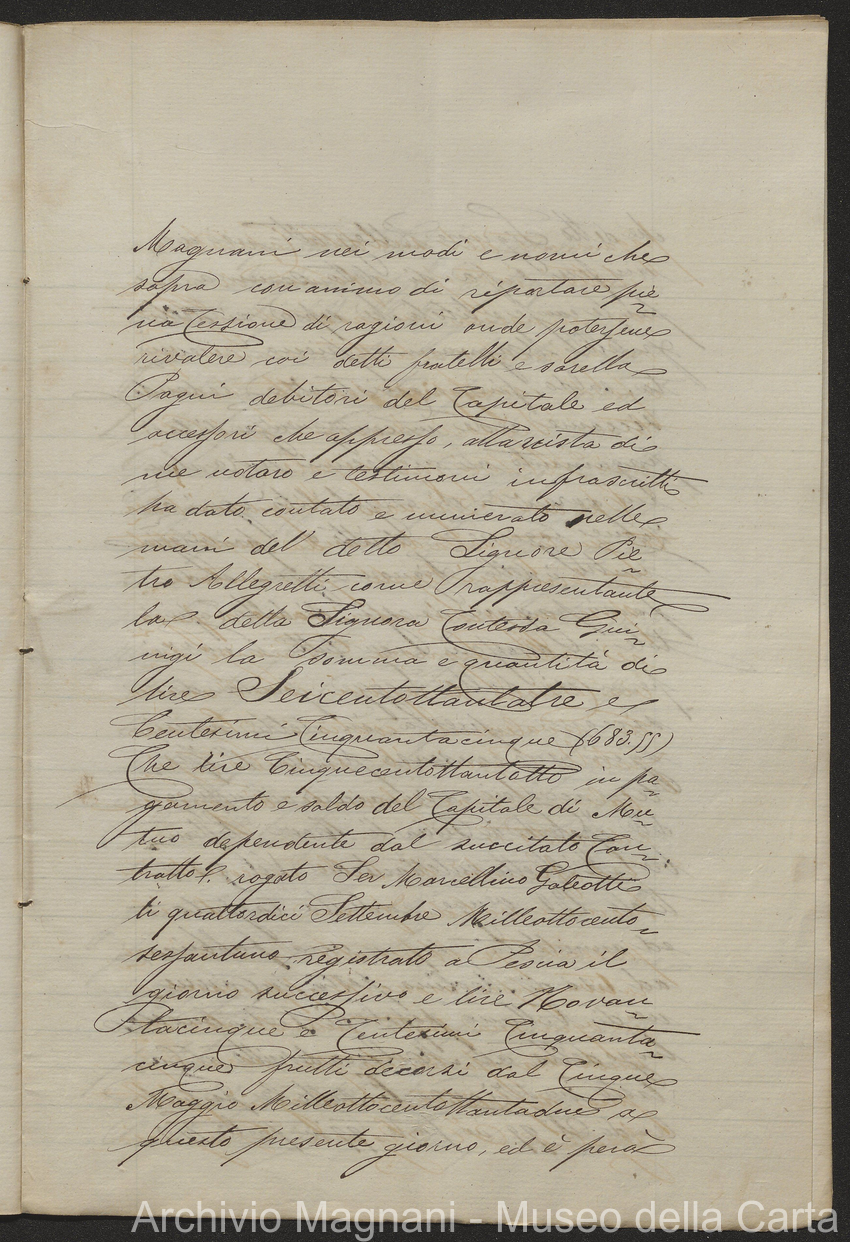 Magnani nei modi e nomi che
sopra con animo di riportare pie
na Cessione di ragioni onde potersene
rivalere coi detti fratelli e sorella
Pagni debitori del Capitale ed
accessori che appresso, alla vista di
me notaro e testimoni infrascritti
ha dato contato e numerato nelle
mani del' detto Signore Pie
tro Allegretti come rappresentante
la della Signora Contessa Gui
nigi la somma e quantità di
lire Seicentottantatre e
Centesimi Cinquantacinque (683.55)
Che lire Cinquecentottantotto in pa
gamento e saldo del Capitale di Mu
tuo dependente dal succitato Con
tratto rogato Ser Marcellino Galeotti
li quattordici Settembre Milleottocento
sessantuno registrato a Pescia il
giorno successivo e lire Novan
tacinque e Centesimi Cinquanta
cinque frutti decorsi dal Cinque
Maggio Milleottocentottantadue a
questo presente giorno, ed è però
Archivio Magnani - Museo della Carta